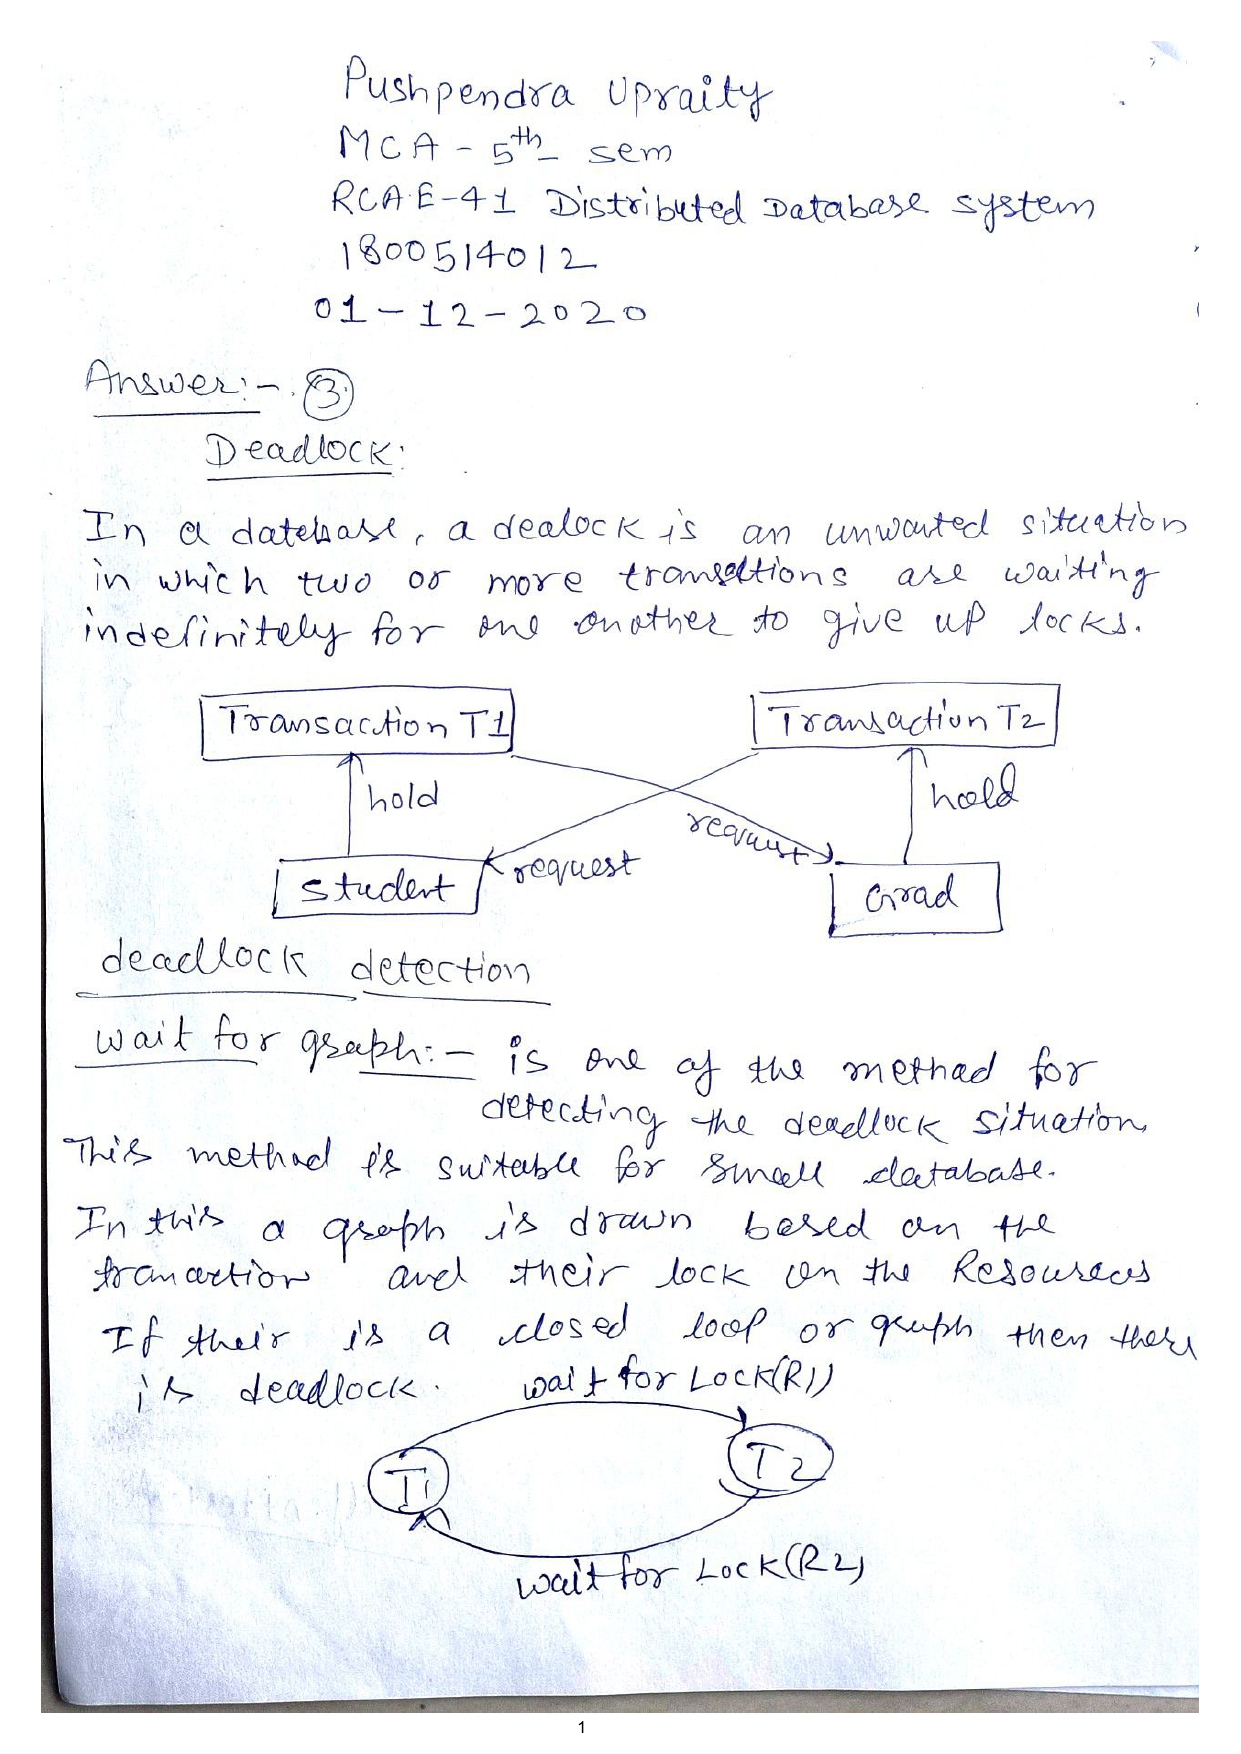 Pushpendra Upraity
MCA - 5th sem
RCA-E-41 Distributed Database system
1800514012
01-12-2020
Answer:- 3
Deadlock:
In a datebase, a dealock is an unwanted situation
in which two or more transctions are waiting
indefinitely for one another to give up locks.
Transaction T1 Transaction T2
hold hold
request
request
student Grad
deadlock detection
wait for graph:- is one of the method for
detecting the deadlock situation.
This method is suitable for small database.
In this a graph is drawn based on the
tranaction and their lock on the Resources
If their is a closed loop or graph then there
is deadlock.
wait for Lock(R1)
T1 T2
wait for Lock(R2)
1